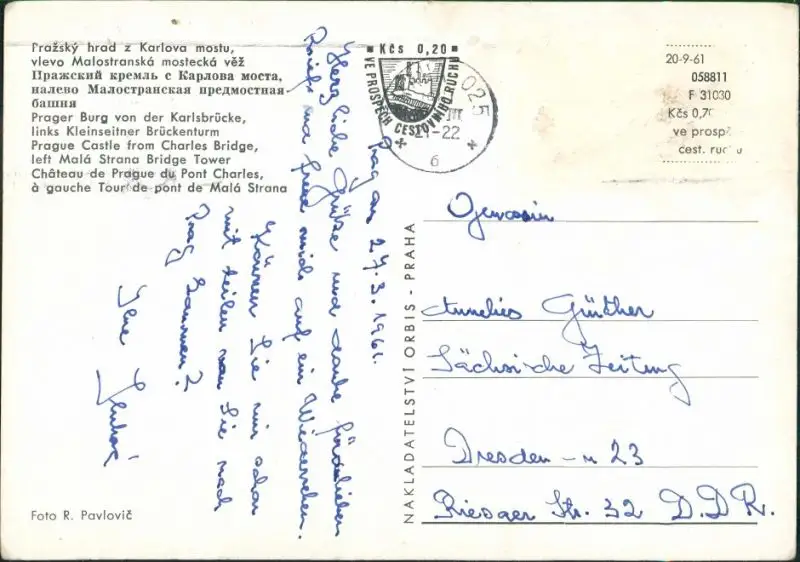 Pražský hrad z Karlova mostu,
vlevo Malostranská mostecká věž
Пражский кремль с Карлова моста,
налево Малостранская предмостная
башня
Prager Burg von der Karlsbrücke,
links Kleinseitner Brückenturm
Prague Castle from Charles Bridge,
left Malá Strana Bridge Tower
Château de Prague du Pont Charles,
à gauche Tour de pont de Malá Strana
Kčs 0,20
VE PROSPĚCH CESTOVNÍHO RUCHU
025
III
21-22
6
20-9-61
058811
F 31030
Kčs 0,70
ve prosp
cest. ruchu
Prag am 27.3.1962.
Herzliche Grüße und danke für lieben
Brief und freue mich auf ein Wiedersehen.
Können Sie mir schon
mit teilen wann Sie nach
Prag kommen?
Ihre
NAKLADATELSTVÍ ORBIS - PRAHA
Annelies Günther
Sächsische Zeitung
Dresden - n 23
Riesaer Str. 32 D.D.R.
Foto R. Pavlovič